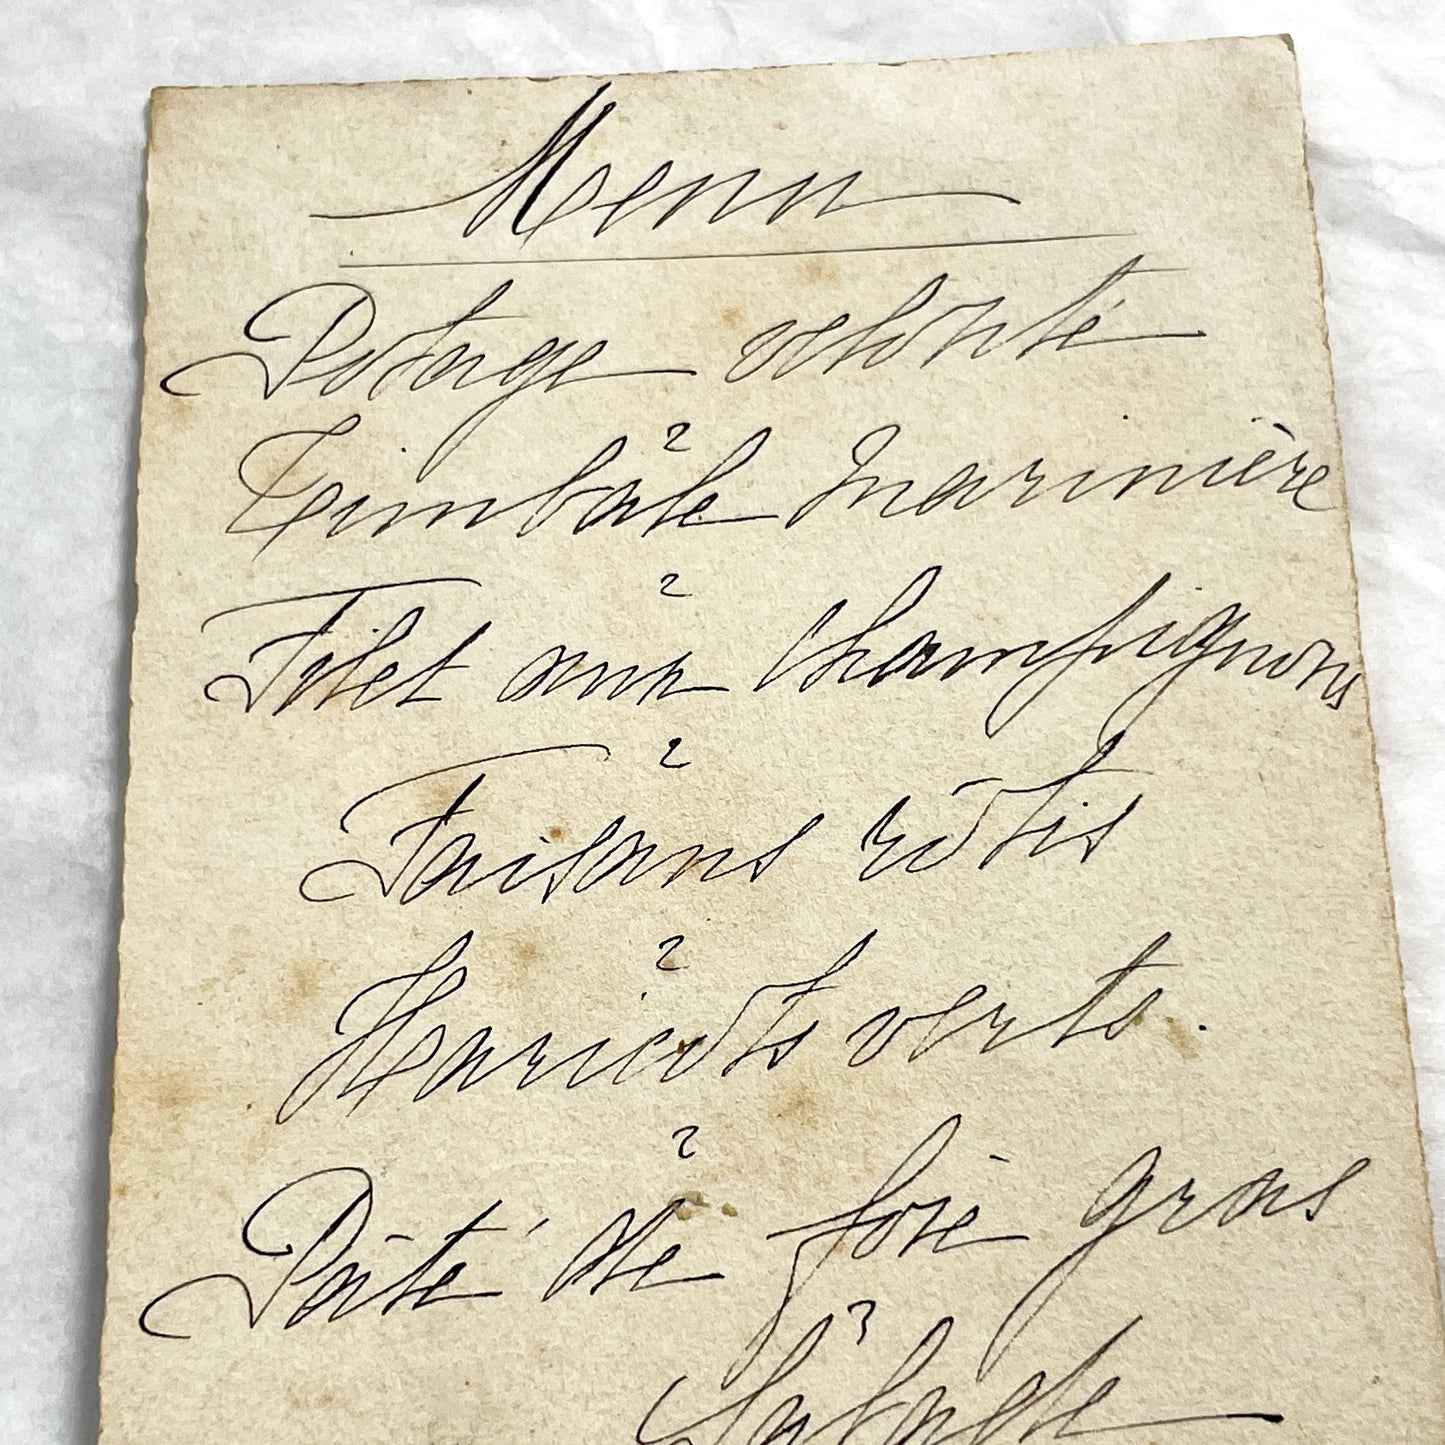 Menu
Potage velouté
Timbale Marinière
Filet aux Champignons
Faisans rôtis
Haricots verts.
Pâté de foie gras
Salade